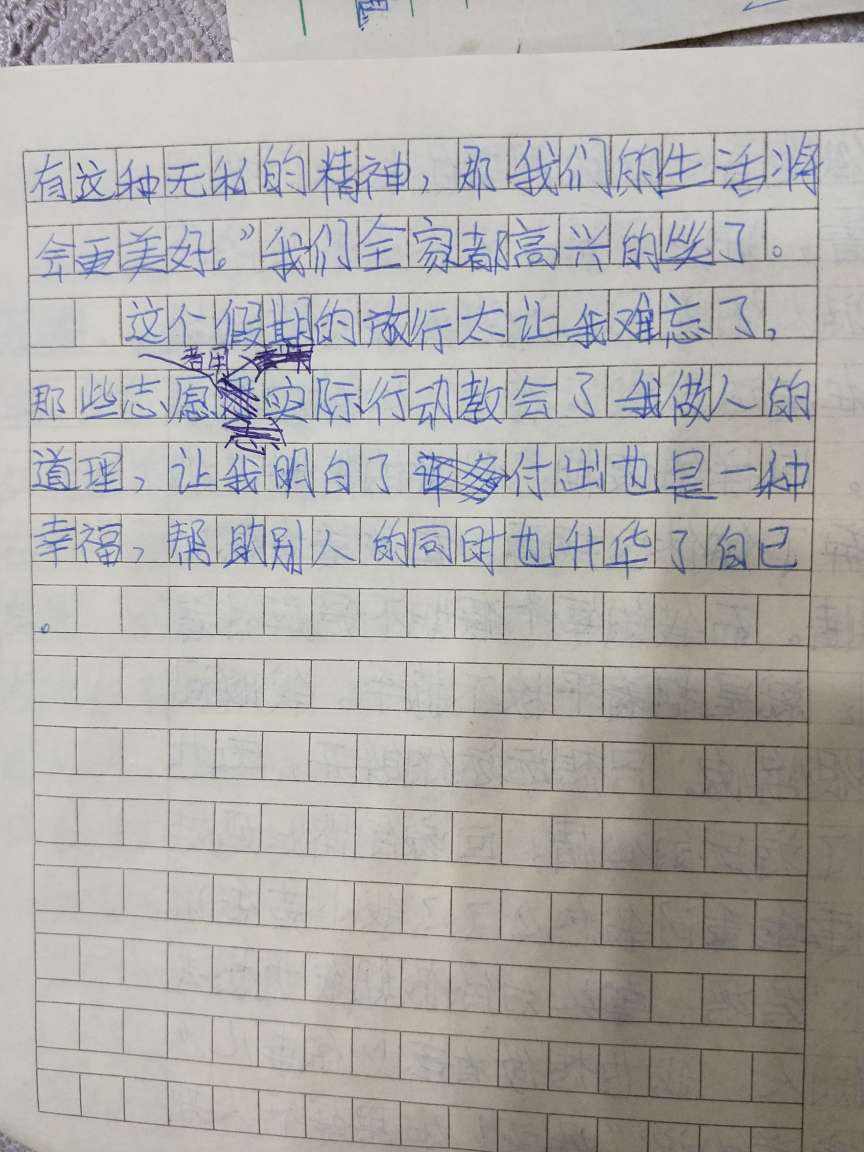 有这种无私的精神，那我们的生活将
会更美好。”我们全家都高兴的笑了。
这个假期的旅行太让我难忘了，
那些志愿者用实际行动教会了我做人的
道理，让我明白了付出也是一种
幸福，帮助别人的同时也升华了自己
。